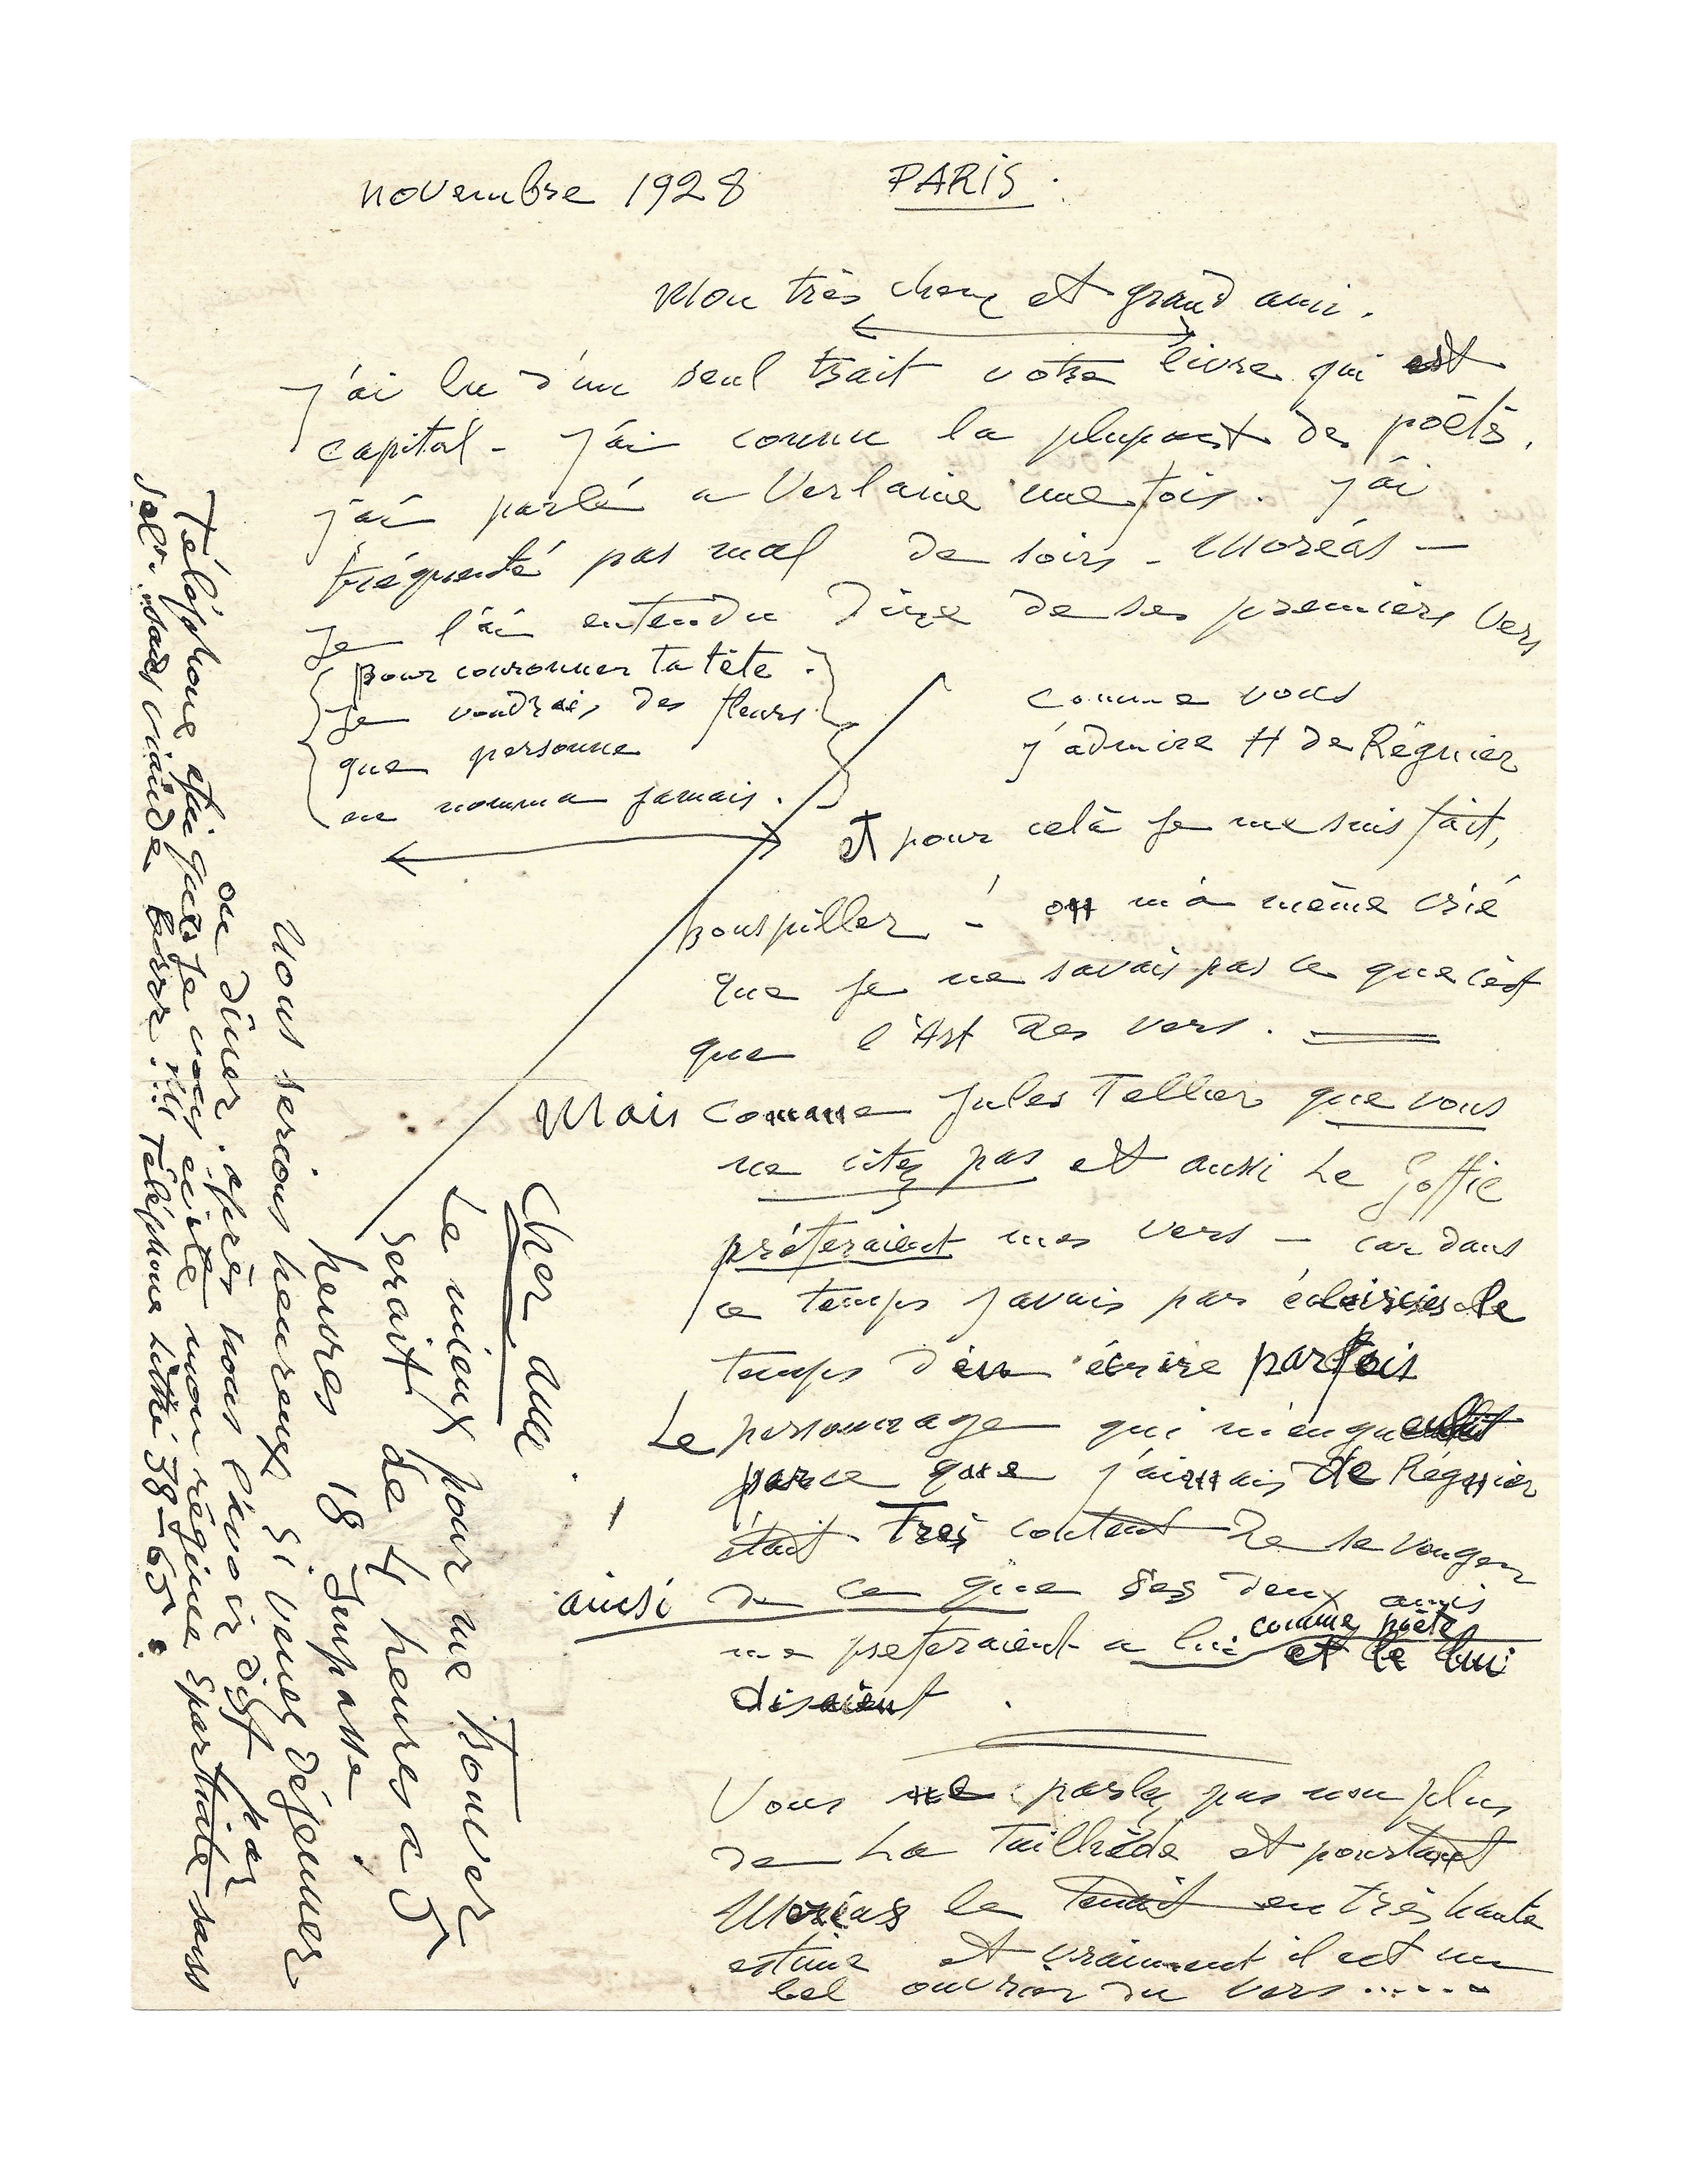 novembre 1928 PARIS.
Mon très cher et grand ami.
J'ai lu d'un seul trait votre livre qui est
capital - J'ai connu la plupart des poëtes.
j'ai parlé a Verlaine une fois. J'ai
fréquenté pas mal de soirs - Moréas -
Je l'ai entendu dire de ses premiers vers
pour couronner ta tête.
Je voudrais des fleurs
que personne
ne nomma jamais.
comme vous
j'admire H de Régnier
et pour celà je me suis fait,
houspiller - ! on m'a même crié
que je ne savais pas ce que c'est
que l'Art des vers.
Mais comme Jules Tellier que vous
ne citez pas et aussi Le Goffic
préferaient mes vers - car dans
ce temps j'avais par éclaircies le
temps d'en écrire parfois
Le personnage qui m'engueulait
parce que j'aimais de Régnier
était Tres content de se venger
ainsi de ce que ses deux amis
me preferaient a lui comme poëte
et le lui
disaient.
Vous ne parlez pas non plus
de La Tailhède et pourtant
Moréas le tenait en très haute
estime et vraiment il est un
bel ouvrier du vers.....
Cher ami.
Le mieux pour me trouver
serait de 4 heures a 5
heures 18 Impasse
Nous serions heureux si veniez déjeuner
ou dîner. après nous l'avoir dit par
Téléphone afin que je vous évite mon régime spartiate sans
sel. sans viande Brrr!!! Téléphone Littré 38-65.